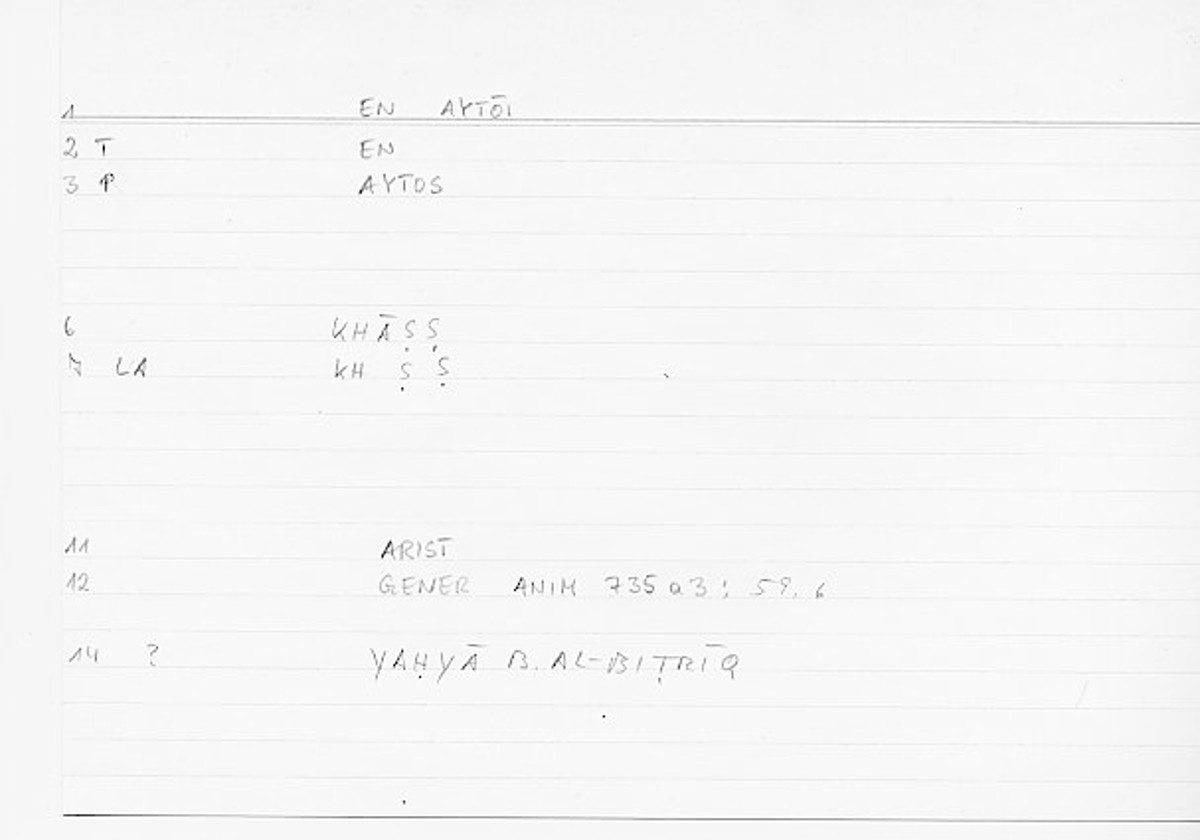 1 EN AYTŌI
2 T EN
3 P AYTOS
6 KHĀṢṢ
7 LA KH ṢṢ
11 ARIST
12 GENER ANIM 735a3; 59,6
14 ? YAḤYĀ B. AL-BIṬRĪQ